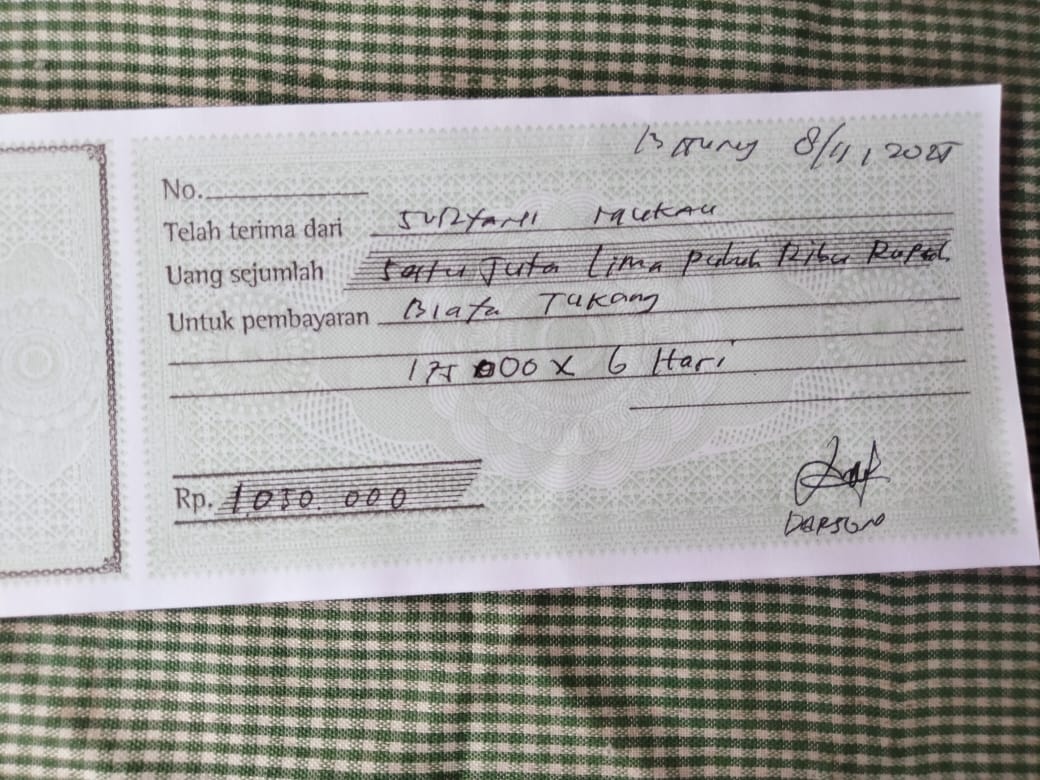 8/11, 2025
No.
Telah terima dari
Uang sejumlah Satu Juta Lima puluh Ribu Rupiah
Untuk pembayaran Biaya Tukang
175 000 X 6 Hari
Rp. 1.050.000
DARSONO